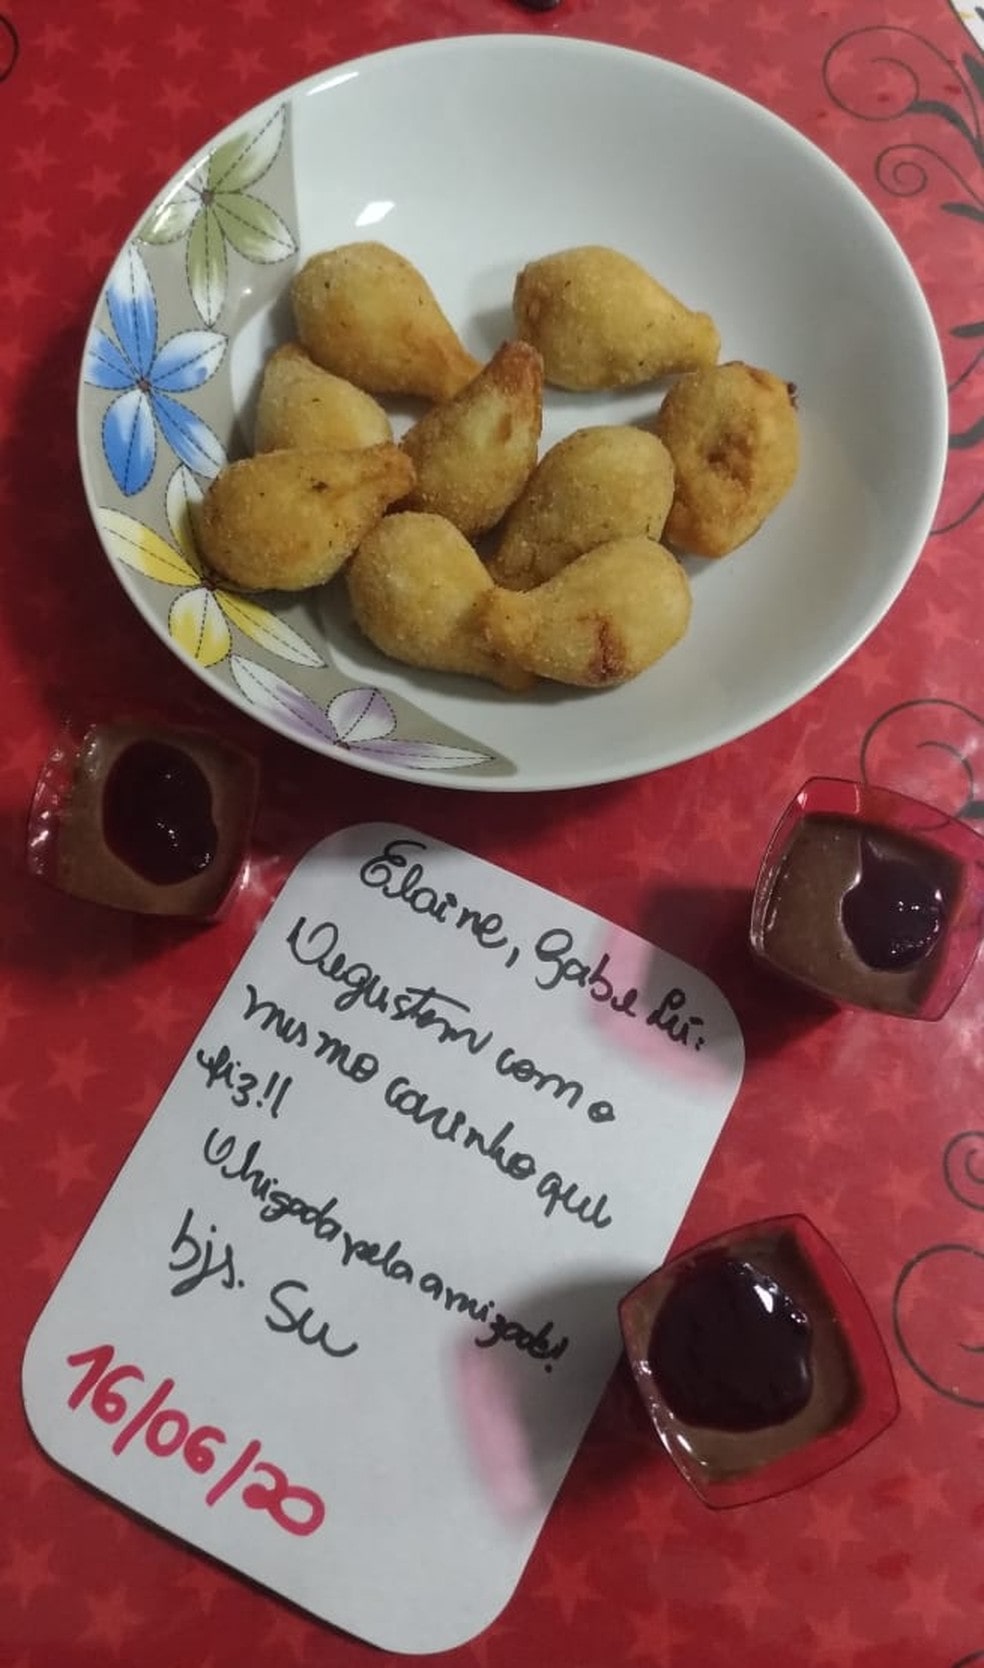 Elaine, Gab e Lú:
Degustem com o
mesmo carinho que
fiz!!
Obrigada pela amizade!
bjs. Su
16/06/20